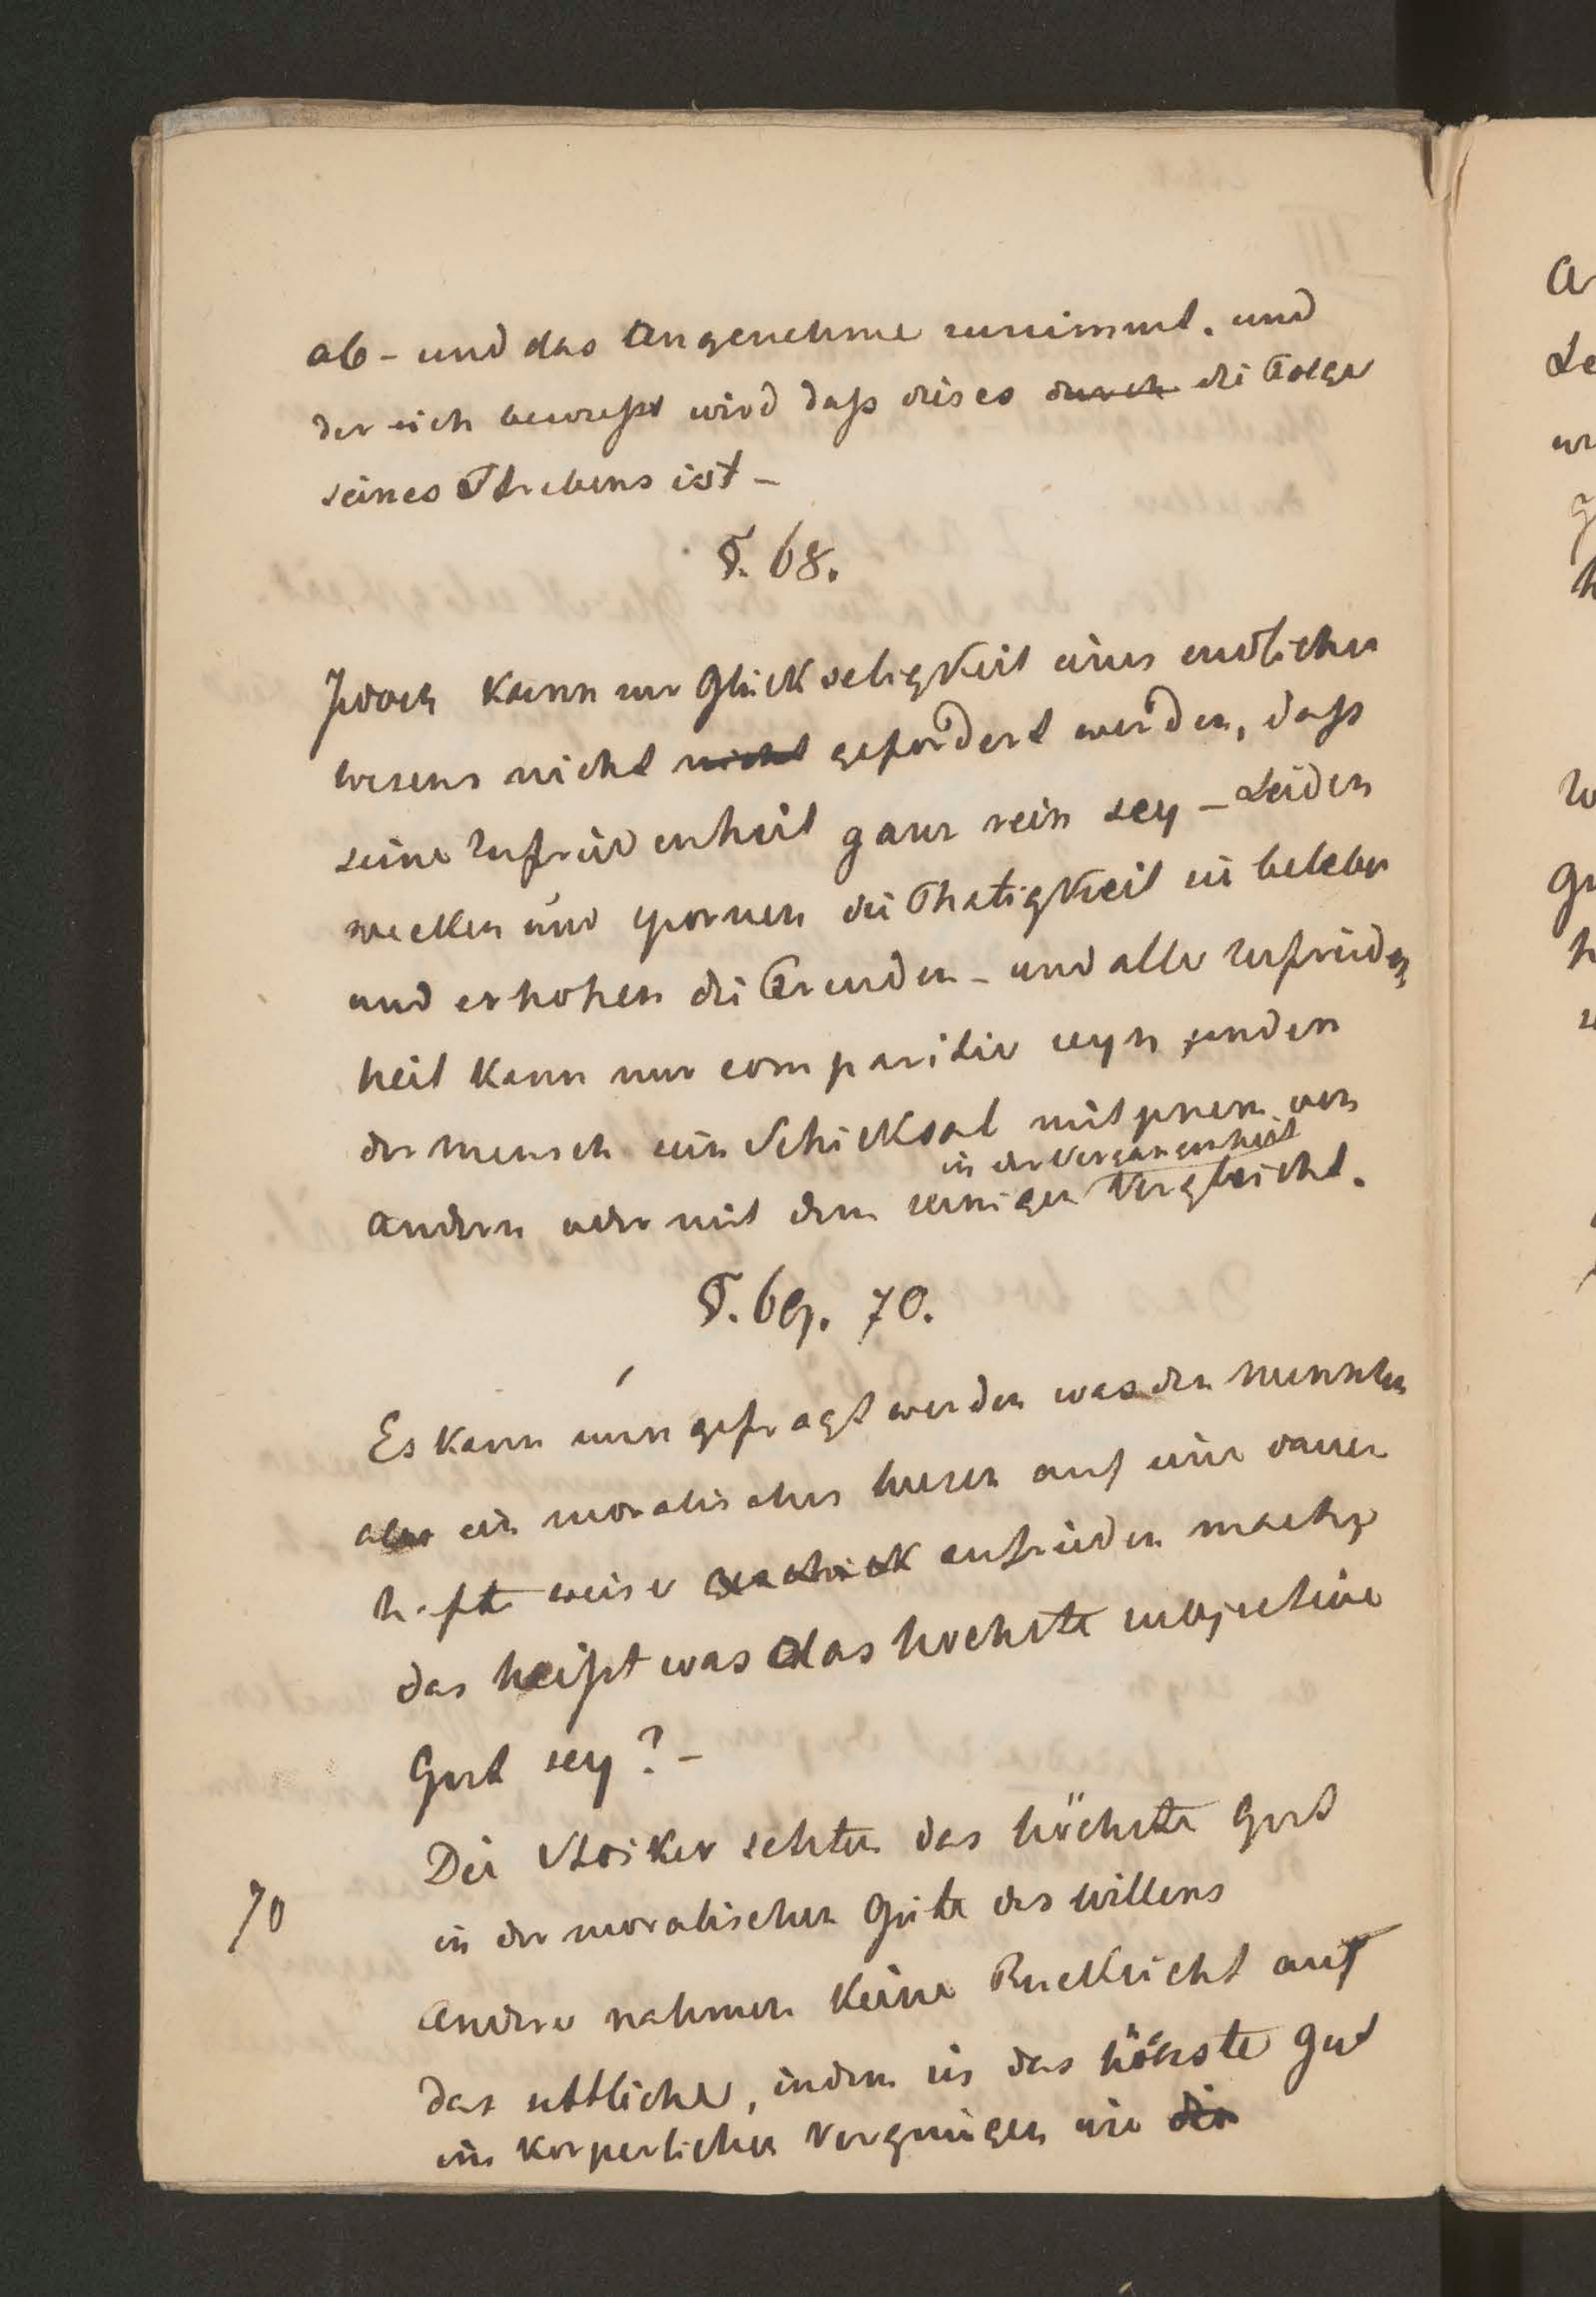 ab- und das Angenehme zunimmt. und
der sich bewußt wird daß dieses durch die Folge
seines Strebens ist -
§. 68.
Jedoch kann zur Glückseligkeit eines endlichen
Wesens nicht nicht gefordert werden, daß
seine Zufriedenheit ganz rein sey - Leiden
wecken und spornen die Thatigkeit sie beleben
und erhohen die Freuden - und alle Zufrieden
heit kann nur comparitiv seyn, indem
der Mensch sein Schicksal mit jenem von
in der Vergangenheit
andern oder mit dem seinigen Vergleicht.
§. 69. 70.
Es kann nun gefragt werden was den Mennschen
als ein moralisches Wesen auf eine dauer
hafte weise zufrieden mache,
das heißt was das hochste subjective
Gut sey? -
Die Stoiker sehten das höchste Gut
70
in der moralischen Güte des Willens
Andere nahmen keine Rucksicht auf
das sittliche, indem sie das höchste Gut
ins korperliche Vergnügen wie die